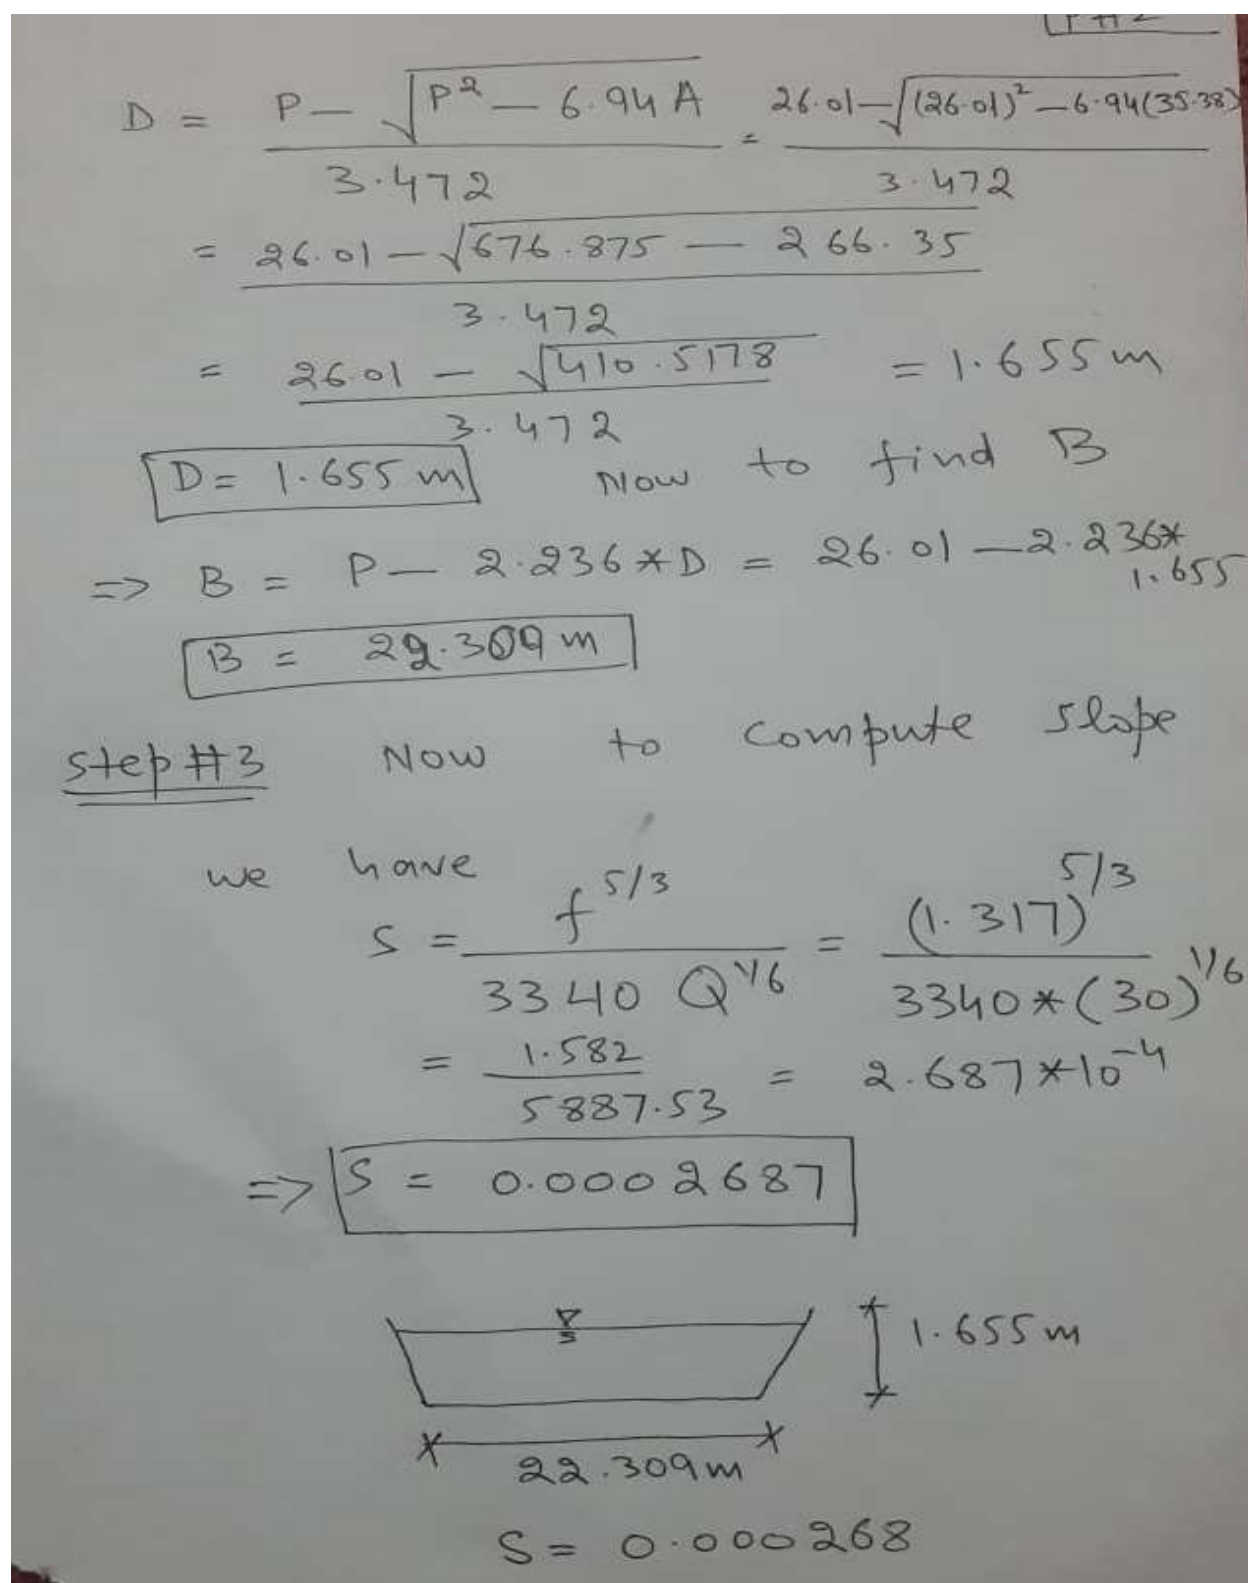 P#2
D = (P - √(P² - 6.94 A)) / 3.472 = (26.01 - √((26.01)² - 6.94(35.38))) / 3.472
= (26.01 - √(676.875 - 266.35)) / 3.472
= (26.01 - √410.5178) / 3.472 = 1.655 m
D = 1.655 m Now to find B
=> B = P - 2.236*D = 26.01 - 2.236* 1.655
B = 22.309 m
Step #3 Now to compute slope
we have
S = f^5/3 / 3340 Q^1/6 = (1.317)^5/3 / 3340*(30)^1/6
= 1.582 / 5887.53 = 2.687*10^-4
=> S = 0.0002687
1.655 m
22.309 m
S = 0.000268